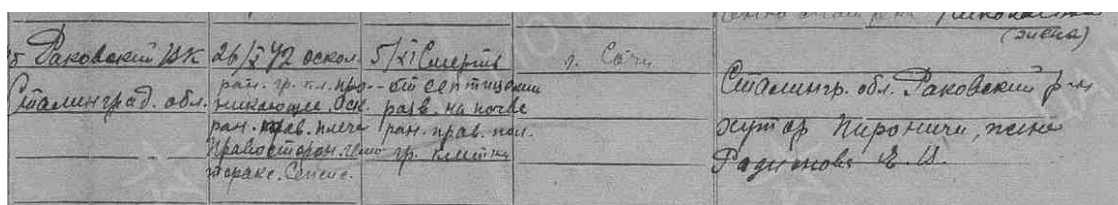 (жена)
Раковский РВК
Сталинград. обл.
26/X 42 оскол.
ран. гр. кл. про-
никающее. Оск.
ран. прав. плеча
Правосторон. гемо
торакс. Сепсис.
5/XI Смерть
от септицемии
разв. на почве
ран. прав. пол.
гр. клетки
г. Сочи
Сталингр. обл. Раковский р-н
хутор жена
Радионова Е. И.